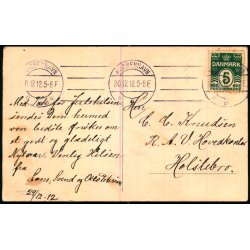 KJØBENHAVN
30.12.12.5-6 F
KJØBENHAVN
30.12.12.5-6 F
DANMARK
5
Med Tak for Julehilsen
sendes Dem hermed
vore bedste Ønsker om
et godt og glædeligt
Nytaar. Venlig Hilsen
fra
Lone, Svend og
29/12-12
Hr.
C. C. Knudsen
K. A. V. Hovedkontor
Holstebro.